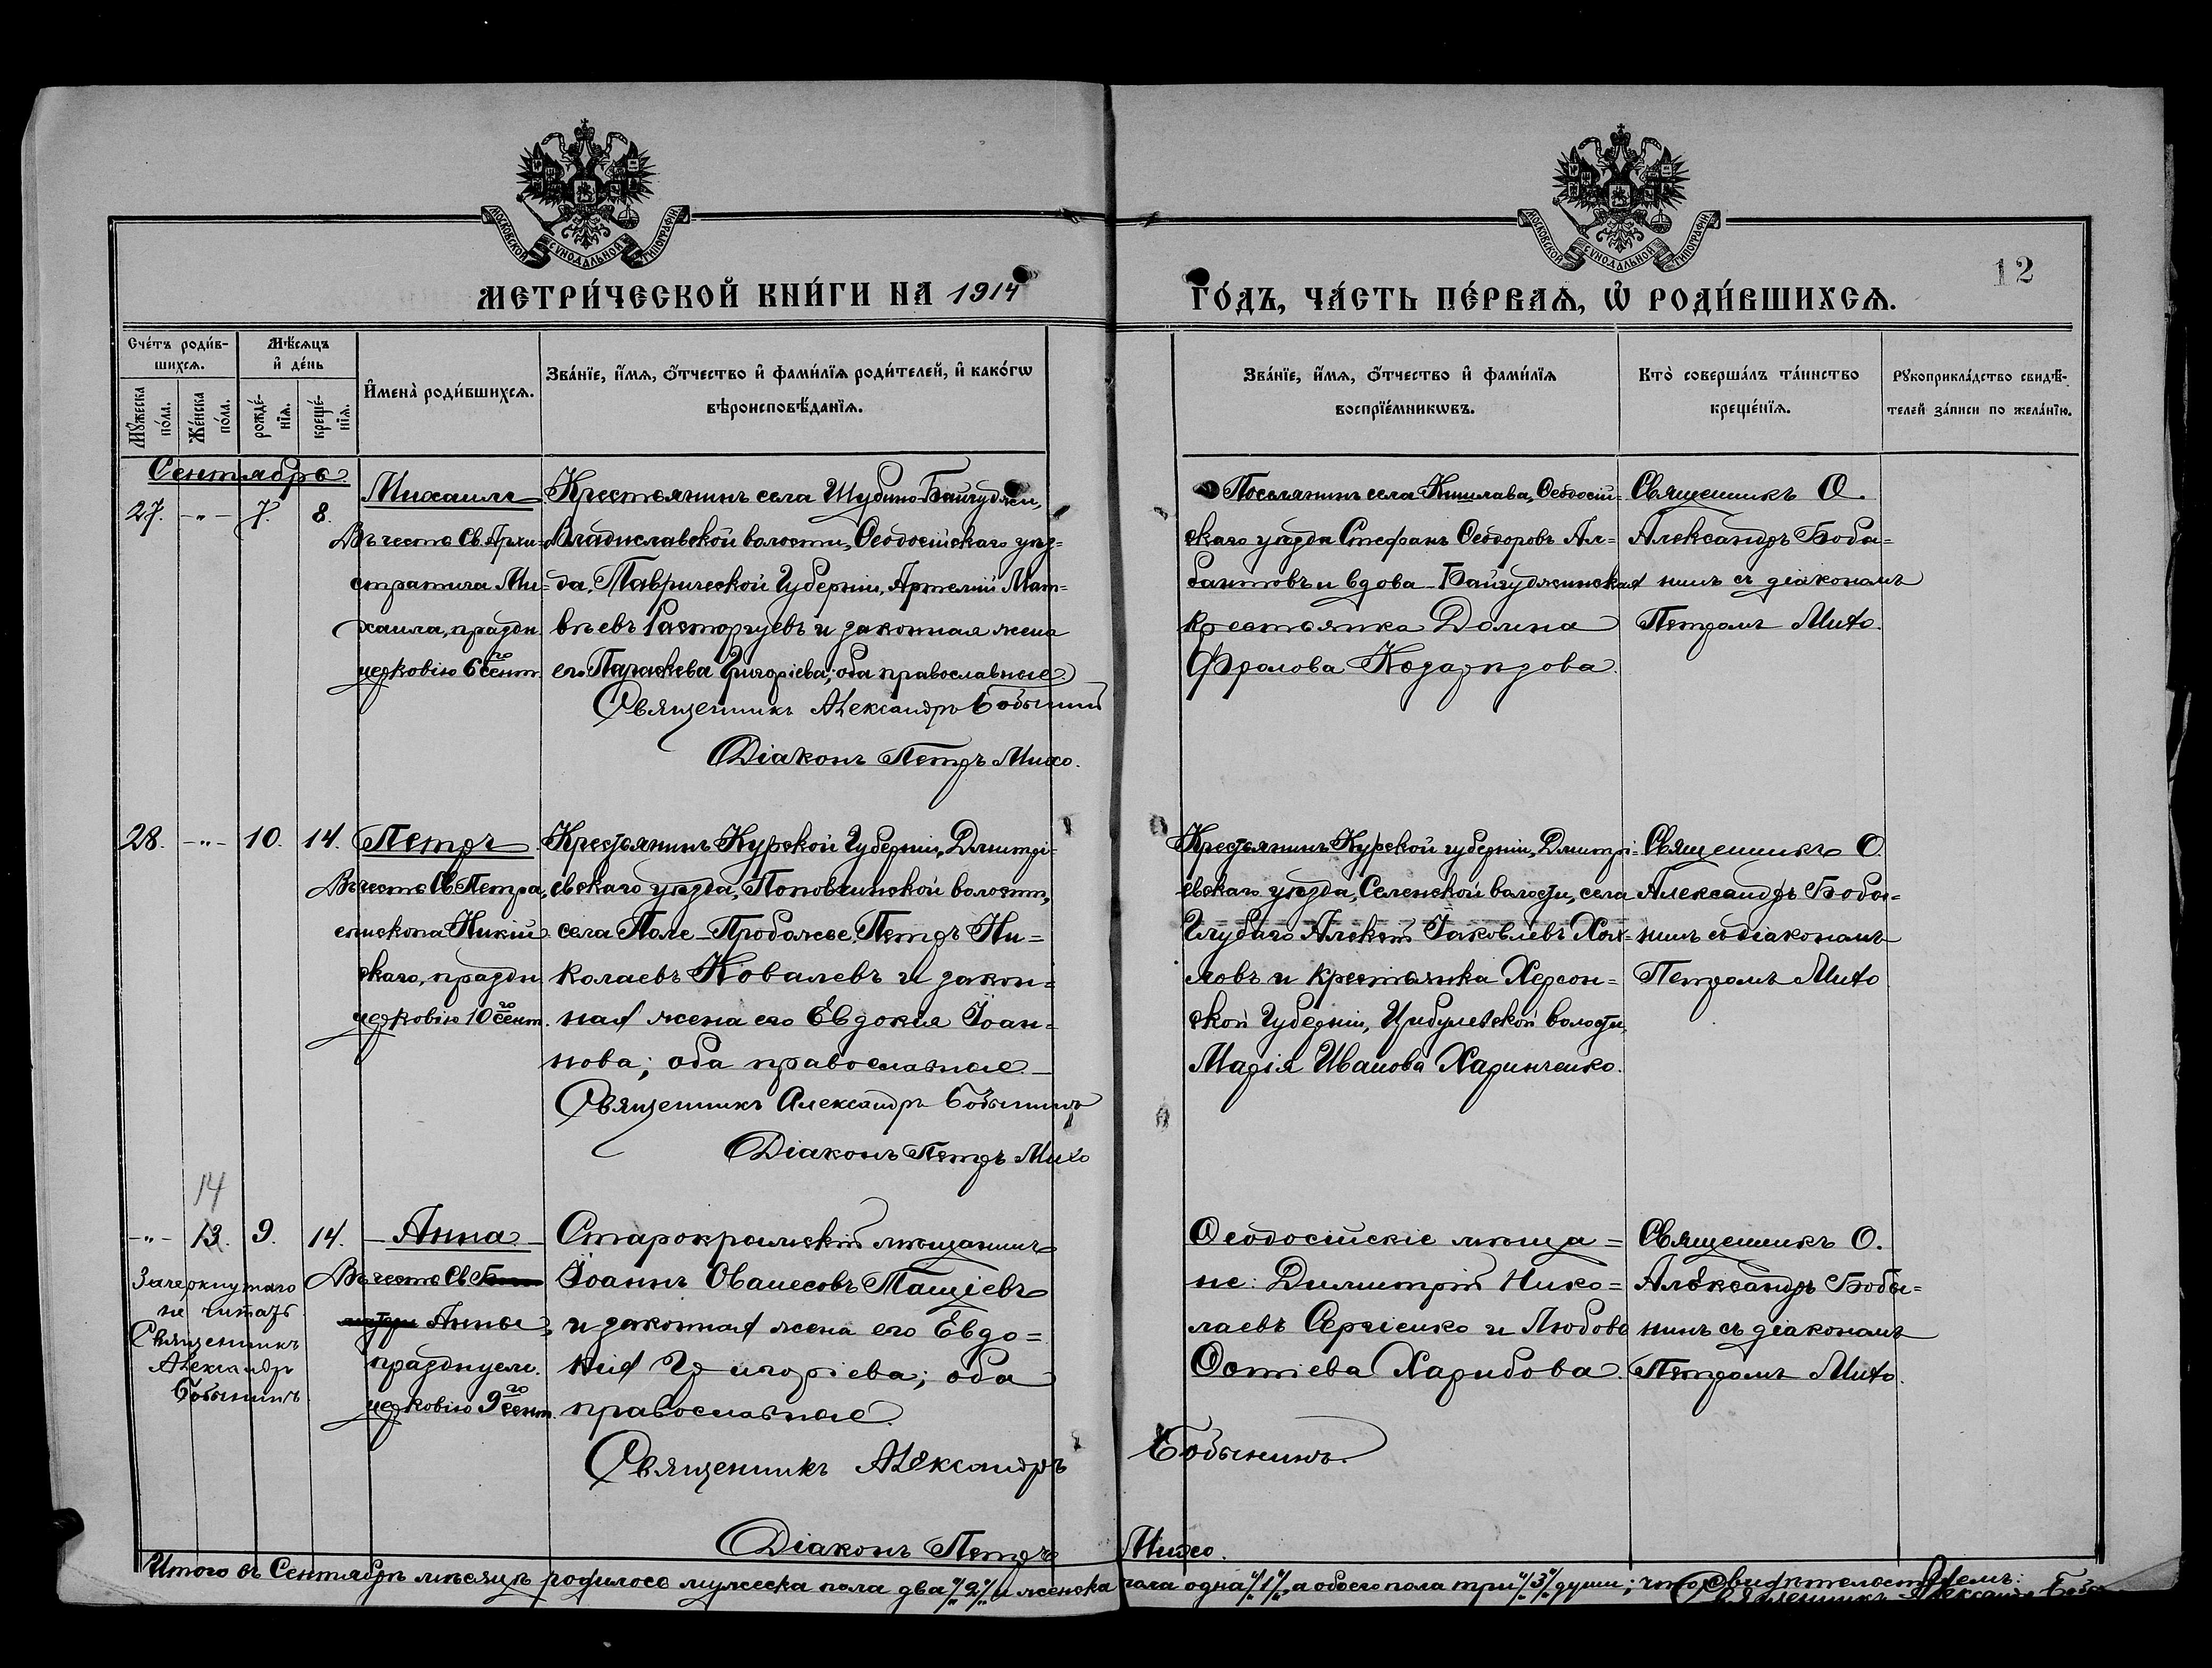 МОСКОВСКОЙ СѴНОДАЛЬНОЙ ТИПОГРАФІИ
МОСКОВСКОЙ СѴНОДАЛЬНОЙ ТИПОГРАФІИ
12
МЕТРИ́ЧЕСКОЙ КНИ́ГИ НА 1914
ГО́ДЪ, ЧА́СТЬ ПЕ́РВАѦ, Ѡ҆ РОДИ́ВШИХСѦ.
Сче́тъ роди́в-
шихсѧ.
Мѣ́сѧцъ
и҆ де́нь
Мꙋ́жеска
по́ла.
Же́нска
по́ла.
рожде́-
нїѧ.
креще́-
нїѧ.
И҆мена̀ роди́вшихсѧ.
Зва́нїе, и҆́мѧ, ѻ҆́тчество и҆ фами́лїѧ роди́телей, и҆ како́гѡ
вѣроисповѣ́данїѧ.
Зва́нїе, и҆́мѧ, ѻ҆́тчество и҆ фами́лїѧ
воспрїе́мникѡвъ.
Кто̀ соверша́лъ та́инство
креще́нїѧ.
Рꙋкоприкла́дство свидѣ́-
телей за́писи по жела́нїю.
Сентябрь
27. -"- 7. 8.
Михаилъ
Въ честь Св. Архи-
стратига Ми-
хаила, праздн.
церковію 6го сент.
Крестьянинъ села Шубино-Байгуджи,
Владиславской волости, Ѳеодосійскаго уѣз-
да, Таврической Губерніи, Артемій Мат-
вѣевъ Расторгуевъ и законная жена
его Параскева Григоріева; оба православные
Священникъ Александръ Бобынинъ
Діаконъ Петръ Михо.
Поселянинъ села Кишлава, Ѳеодосій-
скаго уѣзда Стефанъ Ѳеодоровъ Ал-
бантовъ и вдова Байгуджинская
крестьянка Домна
Фролова
Священникъ О.
Александръ Бобы-
нинъ съ діакономъ
Петромъ Михо.
28. -"- 10. 14.
Петръ
Въ честь Св. Петра,
епископа Никій-
скаго, праздн.
церковію 10го сент.
Крестьянинъ Курской Губерніи, Дмитрі-
евскаго уѣзда, Поповкинской волости,
села Поле-Проболжье, Петръ Ни-
колаевъ Ковалевъ и закон-
ная жена его Евдокія Іоан-
нова; оба православные
Священникъ Александръ Бобынинъ
Діаконъ Петръ Михо
Крестьянинъ Курской губерніи, Дмитрі-
евскаго уѣзда, Селенской волости, села
Глубаго Алексѣй Іаковлевъ
и крестьянка Херсон-
ской Губерніи, Цибулевской волости
Марія Иванова Харинченко.
Священникъ О.
Александръ Бобы-
нинъ съ діакономъ
Петромъ Михо
14
-"- 13. 9. 14.
Анна
Въ честь Св.
Анны,
празднуем.
церковію 9го сент.
Зачеркнутаго
не читать
Священникъ
Александръ
Бобынинъ
Старокрымскій мѣщанинъ
Іоаннъ Ованесовъ Тащіевъ
и законная жена его Евдо-
кія Григоріева; оба
православные.
Священникъ Александръ Бобынинъ.
Діаконъ Петръ Михо.
Ѳеодосійскіе мѣща-
не: Димитрій Нико-
лаевъ Сергіенко и Любовь
Фотіева Харибова.
Священникъ О.
Александръ Бобы-
нинъ съ діакономъ
Петромъ Михо.
Итого въ Сентябрѣ мѣсяцѣ родилось мужеска пола два "/2"/ и женска пола одна "/1"/, а обоего пола три "/3"/ души; что свидѣтельствуемъ:
Священникъ Александръ